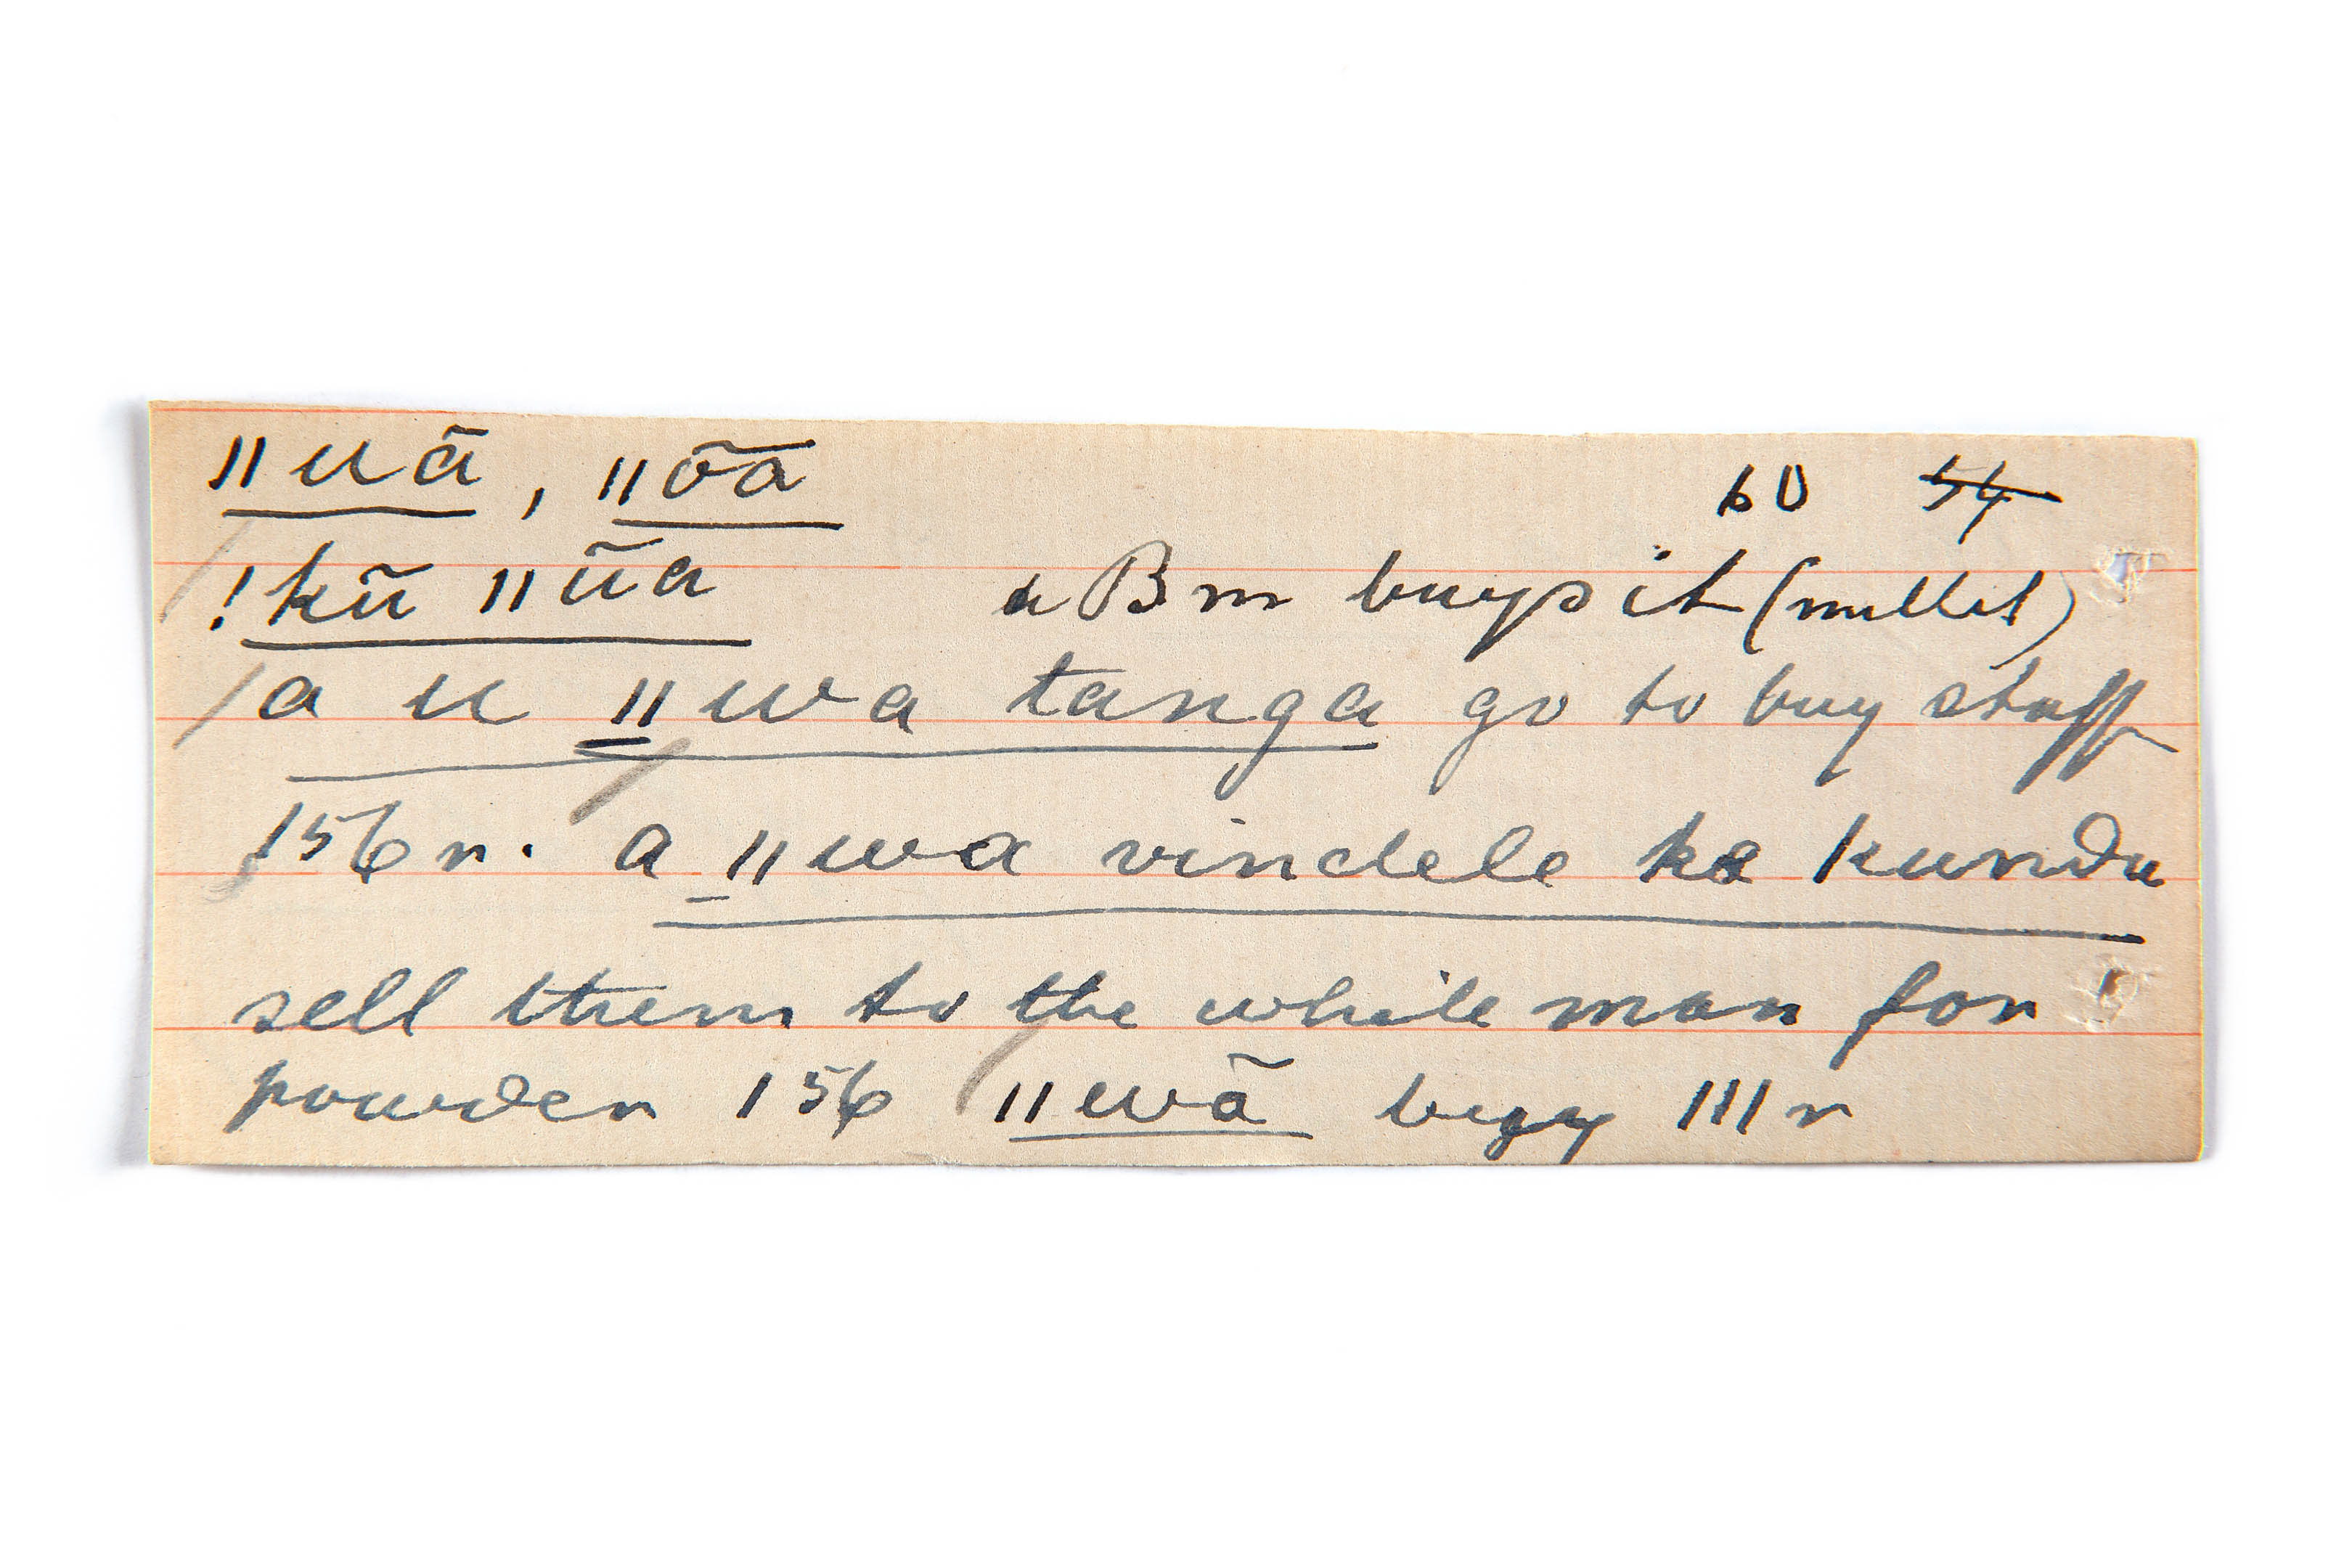 ǁuā, ǁōā 60 54
!kū ǁūa a Bm buys it (millet)
a u ǁwa tanga go to buy stuff
156 r. a ǁwa vindele ka kundu
sell them to the white man for
powder 156 ǁwā buy 111 r